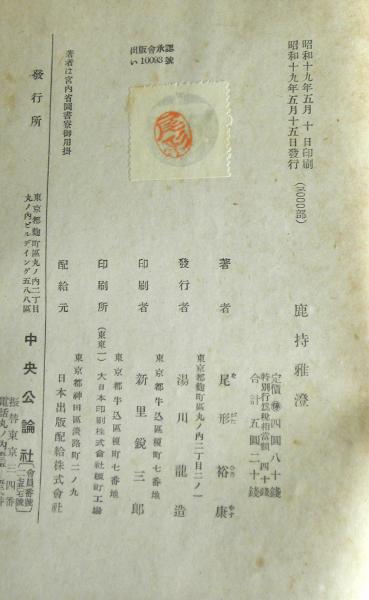 昭和十九年五月十日印刷
昭和十九年五月十五日發行
(5000部)
鹿持雅澄
定價㊕四圓八十錢
特別行爲税相當額四十錢
合計五圓二十錢
著者 尾形裕康
東京都麴町區丸ノ內二丁目二ノ一
發行者 湯川龍造
東京都牛込區榎町七番地
印刷者 新里銳三郎
東京都牛込區榎町七番地
印刷所 (東東一)大日本印刷株式會社榎町工場
東京都神田區淡路町二ノ九
配給元 日本出版配給株式會社
出版會承認
い10093號
著者は宮內省圖書寮御用掛
發行所
東京都麴町區丸ノ內二丁目
丸ノ內ビルデイング五八八區
中央公論社
會員番號
振替東京
電話丸ノ內